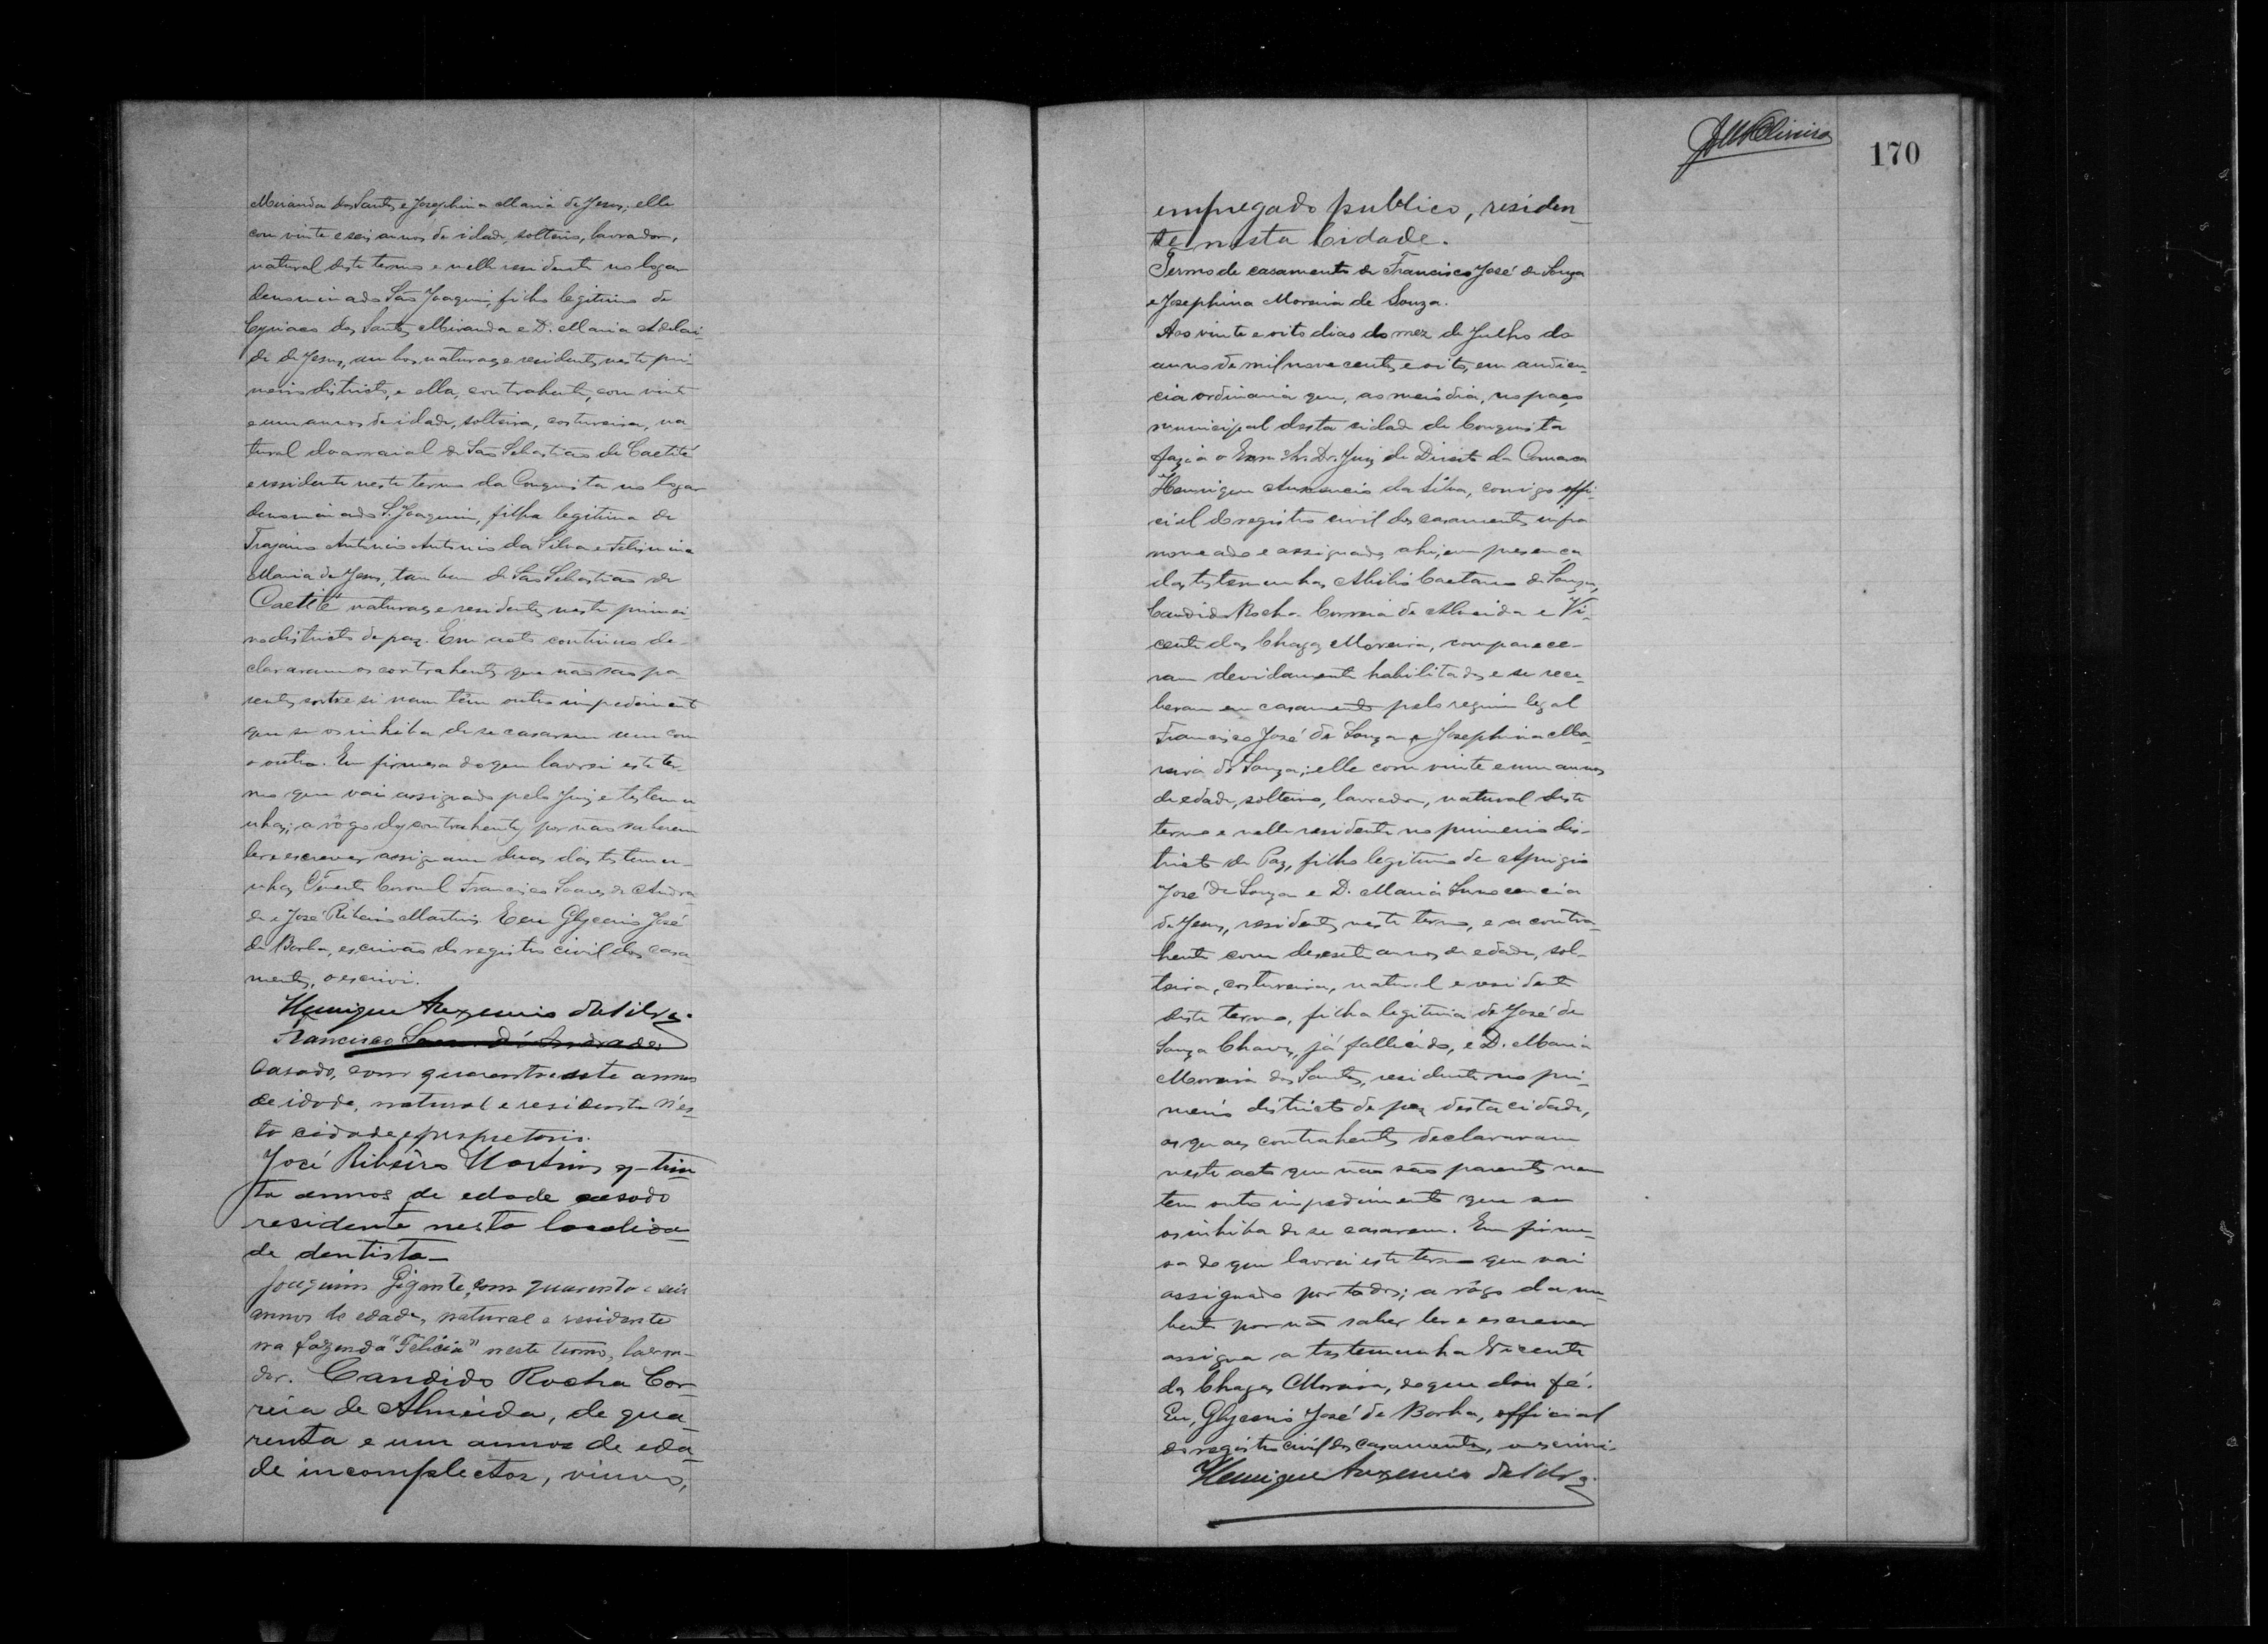 Miranda dos Santos e Josephina Maria de Jesus, elle
com vinte e seis annos de idade, solteiro, lavrador,
natural deste termo e nelle residente no logar
denominado São Joaquim, filho legitimo de
Cyriaco dos Santos Miranda e D. Maria Adelai-
de de Jesus, ambos naturaes e residentes neste pri-
meiro districto, e ella, contrahente, com vinte
e um annos de idade, solteira, costureira, na
tural do arraial de São Sebastião de Caetité
e residente neste termo da Conquista no logar
denominado S. Joaquim, filha legitima de
Trajano Antonio Antonio da Silva e Felismina
Maria de Jesus, tambem de São Sebastião de
Caetité naturaes e residentes neste primei-
ro districto de paz. Em acto continuo de-
clararam os contrahentes que não são pa-
rentes entre si nem têm outro impedimento
que se os inhiba de se casarem um com
o outro. Em firmesa do que lavrei este ter-
mo que vai assignado pelo Juiz e testemu
nhas; a rôgo dos contrahentes por não saberem
ler e escrever assignam duas das testemu-
nhas Tenente Coronel Francisco Soares de Andra
de e José Ribeiro Martins. E eu Glycerio José
de Borba, escrivão do registro civil dos casa-
mentos, o escrivi.
Henrique Auxencio da Silva.
Francisco Soares de Andrade
Casado, com quarenta e sete annos
de idade, natural e residente n'es-
ta cidade, e propretario.
José Ribeiro Martins g- trin
ta annos de edade casado
residente nesta localida-
de dentista-
Joaquim Gigante, com quarenta e seis
annos de edade, natural e residente
na fazenda "Felicia" neste termo, lavra-
dor. Candido Rocha Cor-
reia de Almeida, de qua-
renta e um annos de eda-
de incomplectos, viuvo,
170
empregado publico, residen-
te nesta Cidade.
Termo de casamento de Francisco José de Souza
e Josephina Moreira de Souza.
Aos vinte e oito dias do mez de Julho do
anno de mil nove centos e oito, em audien-
cia ordinaria que, ao meio dia, no paço
municipal desta cidade de Conquista
fazia o Exmo Sr. Dr. Juiz de Direito da Comarca
Henrique Auxencio da Silva, comigo offi-
cial do registro civil dos casamentos infra
nomeado e assignado, ahi, em presença
das testemunhas Abilio Caetano de Souza,
Candido Rocha Correia de Almeida e Vi-
cente das Chagas Moreira, comparece-
ram devidamente habilitados e se rece-
beram em casamento pelo regimen legal
Francisco José de Souza e Josephina Mo-
reira de Souza; elle com vinte e um annos
de edade, solteiro, lavrador, natural deste
termo e nelle residente no primeiro dis-
tricto de Paz, filho legitimo de Aprigio
José de Souza e D. Maria Innocencia
de Jesus, residentes neste termo, e a contra-
hente com desesete annos de edade, sol-
teira, costureira, natural e residente
deste termo, filha legitima de José de
Souza Chaves, já fallecido, e D. Maria
Moreira dos Santos, residente no pri-
meiro districto de paz desta cidade,
os quaes contrahentes declararam
neste acto que não são parentes nem
tem outro impedimento que se
os inhiba de se casarem. Em firme-
sa do que lavrei este termo que vai
assignado por todos; a rôgo da nu-
bente por não saber ler e escrever
assigna a testemunha Vicente
das Chagas Moreira, do que dou fé.
Eu, Glycerio José de Borba, official
do registro civil dos casamentos, o escrivi.
Henrique Auxencio da Silva.